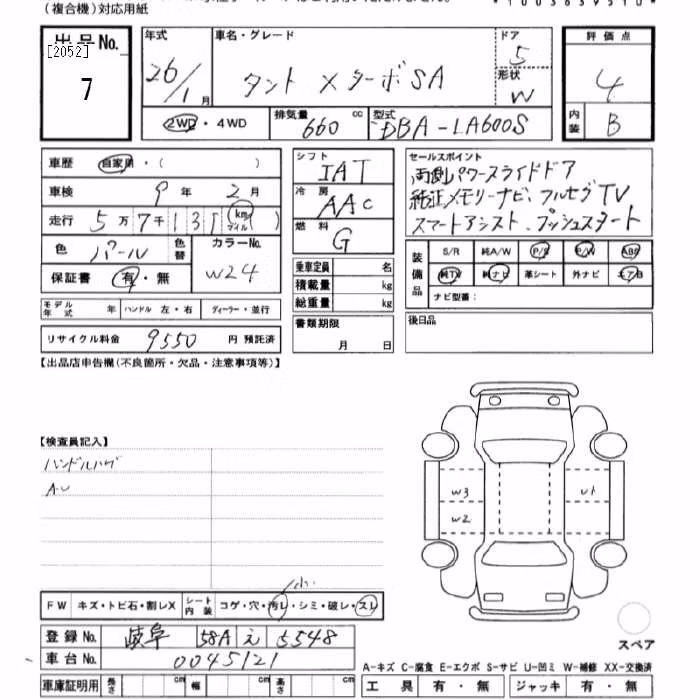 (複合機)対応用紙
出品No.
[2052]
7
年式 26/1月
車名・グレード タント XターボSA
ドア 5
形状 W
評価点 4
内装 B
2WD・4WD
排気量 660 cc
型式 DBA-LA600S
車歴 自家用・( )
車検 9年 2月
走行 5万7千131(km マイル)
色 パール 色替 カラーNo. W24
保証書 有・無
モデル年式 年 ハンドル 左・右 ディーラー・並行
リサイクル料金 9550 円 預託済
シフト IAT
冷房 AAC
燃料 G
乗車定員 名
積載量 kg
総重量 kg
書類期限 月 日
セールスポイント
両側パワースライドドア
純正メモリーナビ、フルセグTV
スマートアシスト、プッシュスタート
装備品 S/R 純A/W P/S P/W ABS
純TV 純ナビ 革シート 外ナビ エアB
ナビ型番:
後日品
【出品店申告欄(不良箇所・欠品・注意事項等)】
【検査員記入】
ハンドルハゲ
A・U
W3 U1
W2
FW キズ・トビ石・割レX シート内装 コゲ・穴・汚レ・シミ・破レ・スレ
小
登録No. 岐阜 58A え 5548
車台No. 0045121
スペア
A-キズ C-腐食 E-エクボ S-サビ U-凹ミ W-補修 XX-交換済
車庫証明用 長さ cm 幅 cm 高さ cm
工具 有・無 ジャッキ 有・無